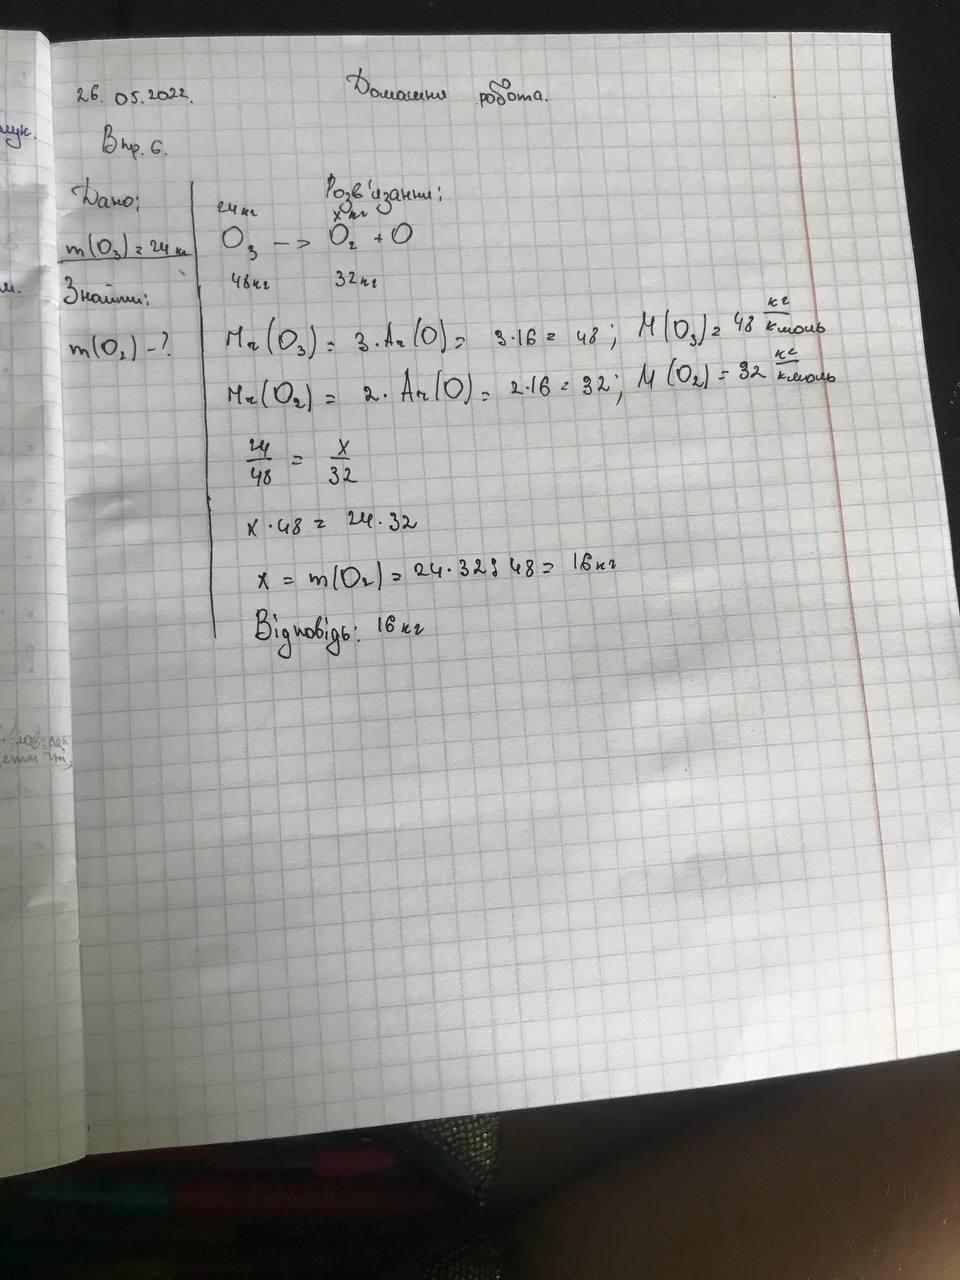 26.05.2022. Домашня робота.
Впр. 6.
Дано: Розв'язання:
24кг х кг
m(O₃) = 24 кг O₃ —> O₂ + O
48кг 32кг
Знайти:
m(O₂) - ? Mr(O₃) = 3·Ar(O) = 3·16 = 48; M(O₃) = 48 кг/кмоль
Mr(O₂) = 2·Ar(O) = 2·16 = 32; M(O₂) = 32 кг/кмоль
24/48 = x/32
x·48 = 24·32
x = m(O₂) = 24·32:48 = 16кг
Відповідь: 16 кг